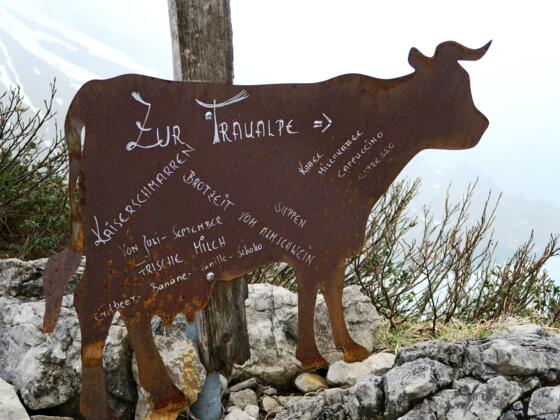 Zur Traualpe =>
Kaffee
Milchkaffee
Cappuccino
Espresso
Kaiserschmarren
Brotzeit vom Almschwein
Suppen
von Juli - September
frische Milch
Erdbeer. Banane. Vanille. Schoko